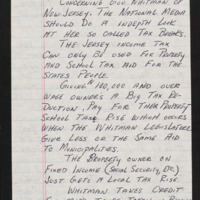 CONCERNING GOV. WHITMAN OF
NEW JERSEY. THE NATIONAL MEDIA
SHOULD DO A INDEPTH LOOK
AT HER SO CALLED TAX BREAKS.
THE JERSEY INCOME TAX
CAN ONLY BE USED FOR PROPERTY
AND SCHOOL TAX AID FOR THE
STATES PEOPLE.
GIVING 100,000 AND OVER
WAGE OWNERS A BIG TAX DE-
DUCTION, PAY FOR THEIR PROPERTY
SCHOOL TAX RISE WHICH OCCURS
WHEN THE WHITMAN LEGISLATURE
GIVE LESS OR THE SAME AID
TO MUNICIPALITIES.
THE PROPERTY OWNER ON
FIXED INCOME (SOCIAL SECURITY, ETC.)
JUST GETS A LOCAL TAX RISE.
WHITMAN TAKES CREDIT